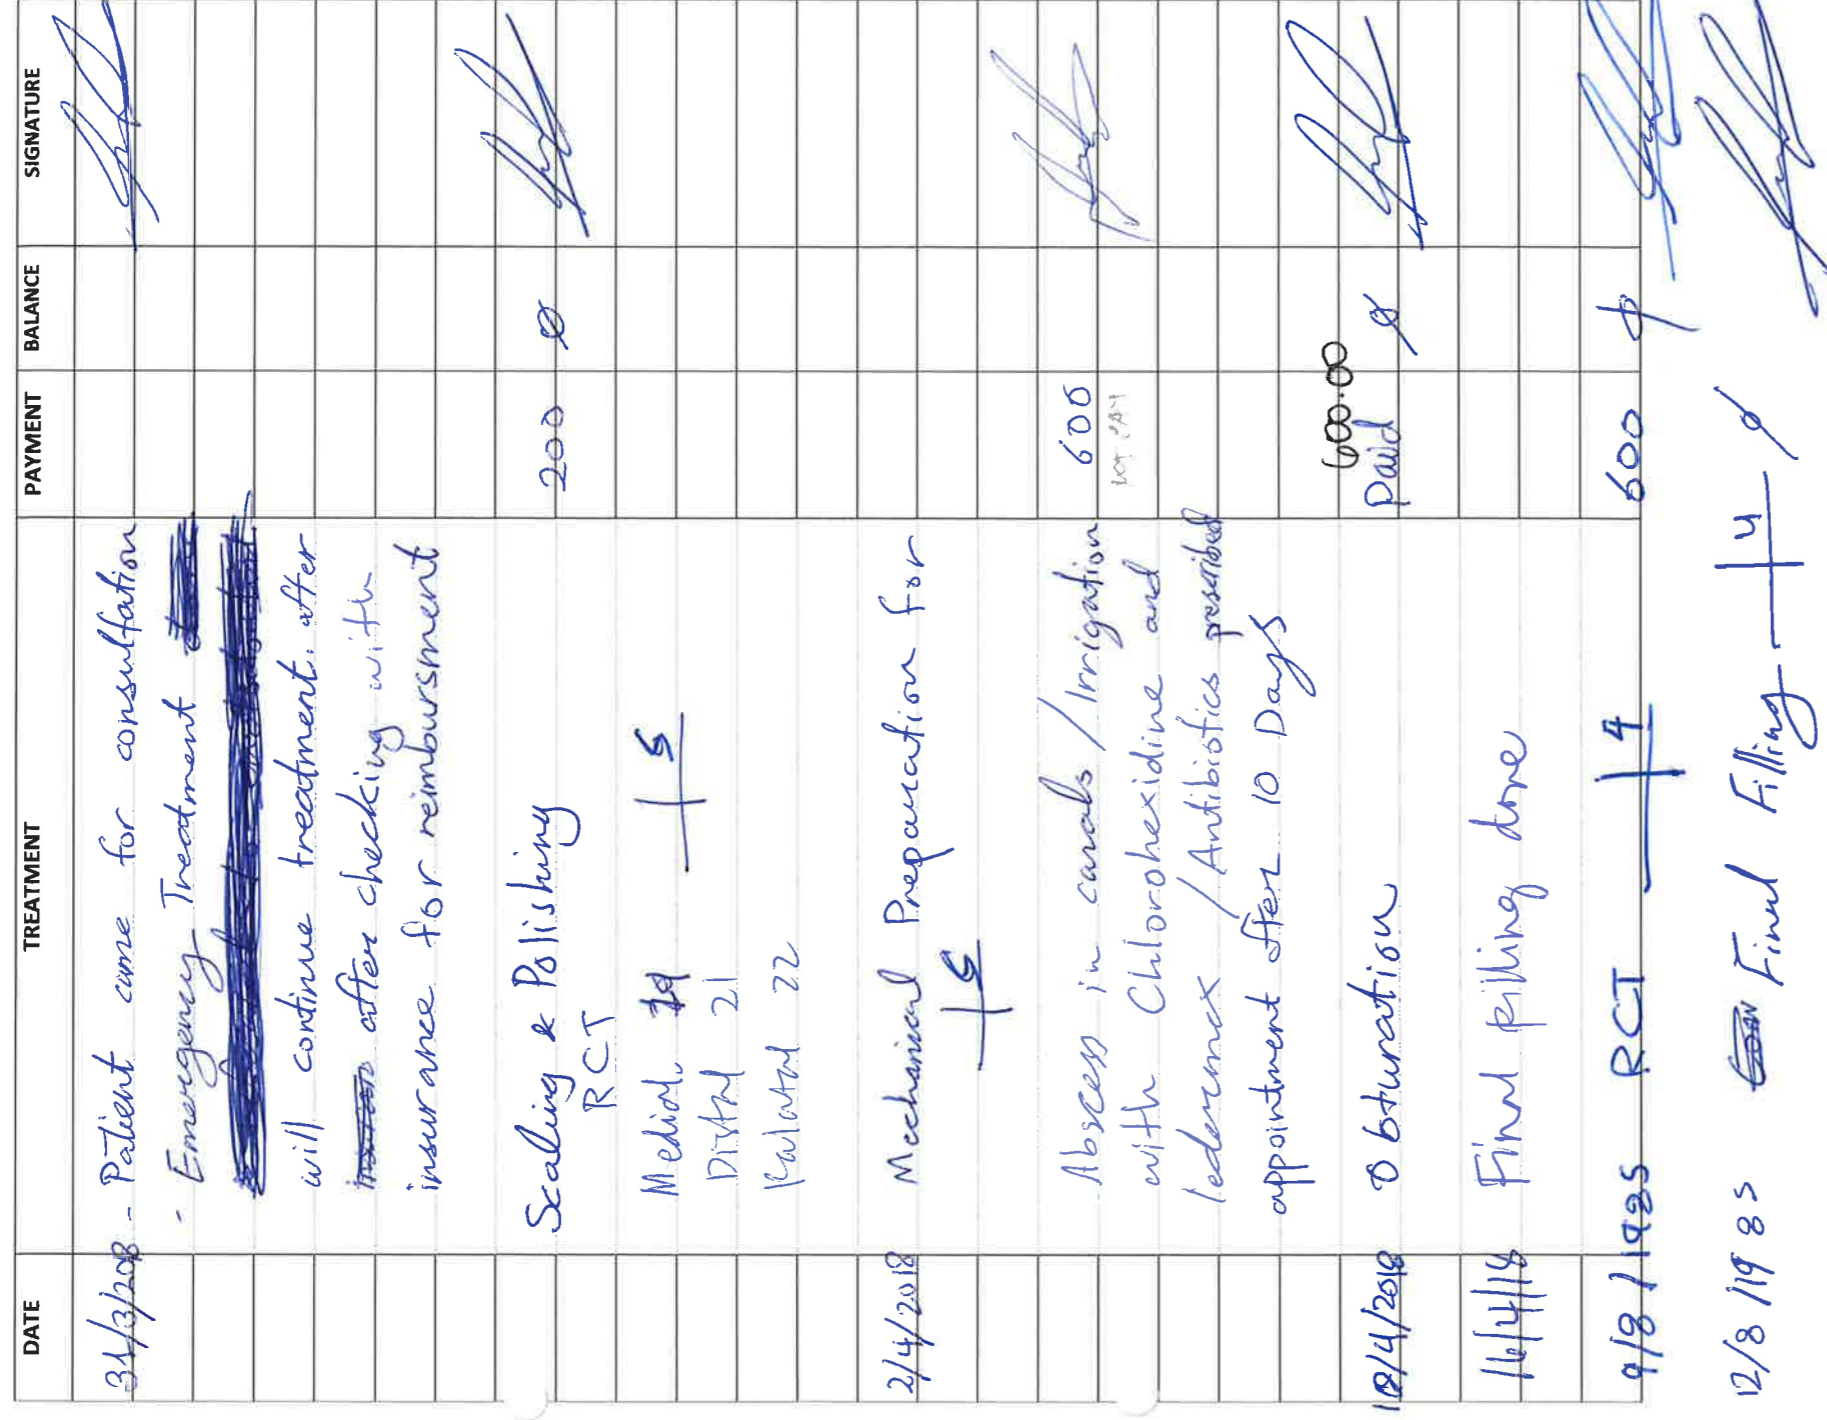 DATE TREATMENT PAYMENT BALANCE SIGNATURE
31/3/2018 - Patient came for consultation
- Emergency Treatment
will continue treatment. after
after checking with
insurance for reimbursment
Scaling & Polishing 200 Ø
RCT
Medial 5
Distal 21
Palatal 22
2/4/2018 Mechanical Preparation for
5
Abscess in canals / Irrigation 600
with Chlorohexidine and
ledermax / Antibiotics prescribed
appointment after 10 Days
600.00
12/4/2018 Obturation paid Ø
16/4/18 Final filling done
9/8/19 85 RCT 4 600 Ø
12/8/19 85 Final Filling 4 Ø